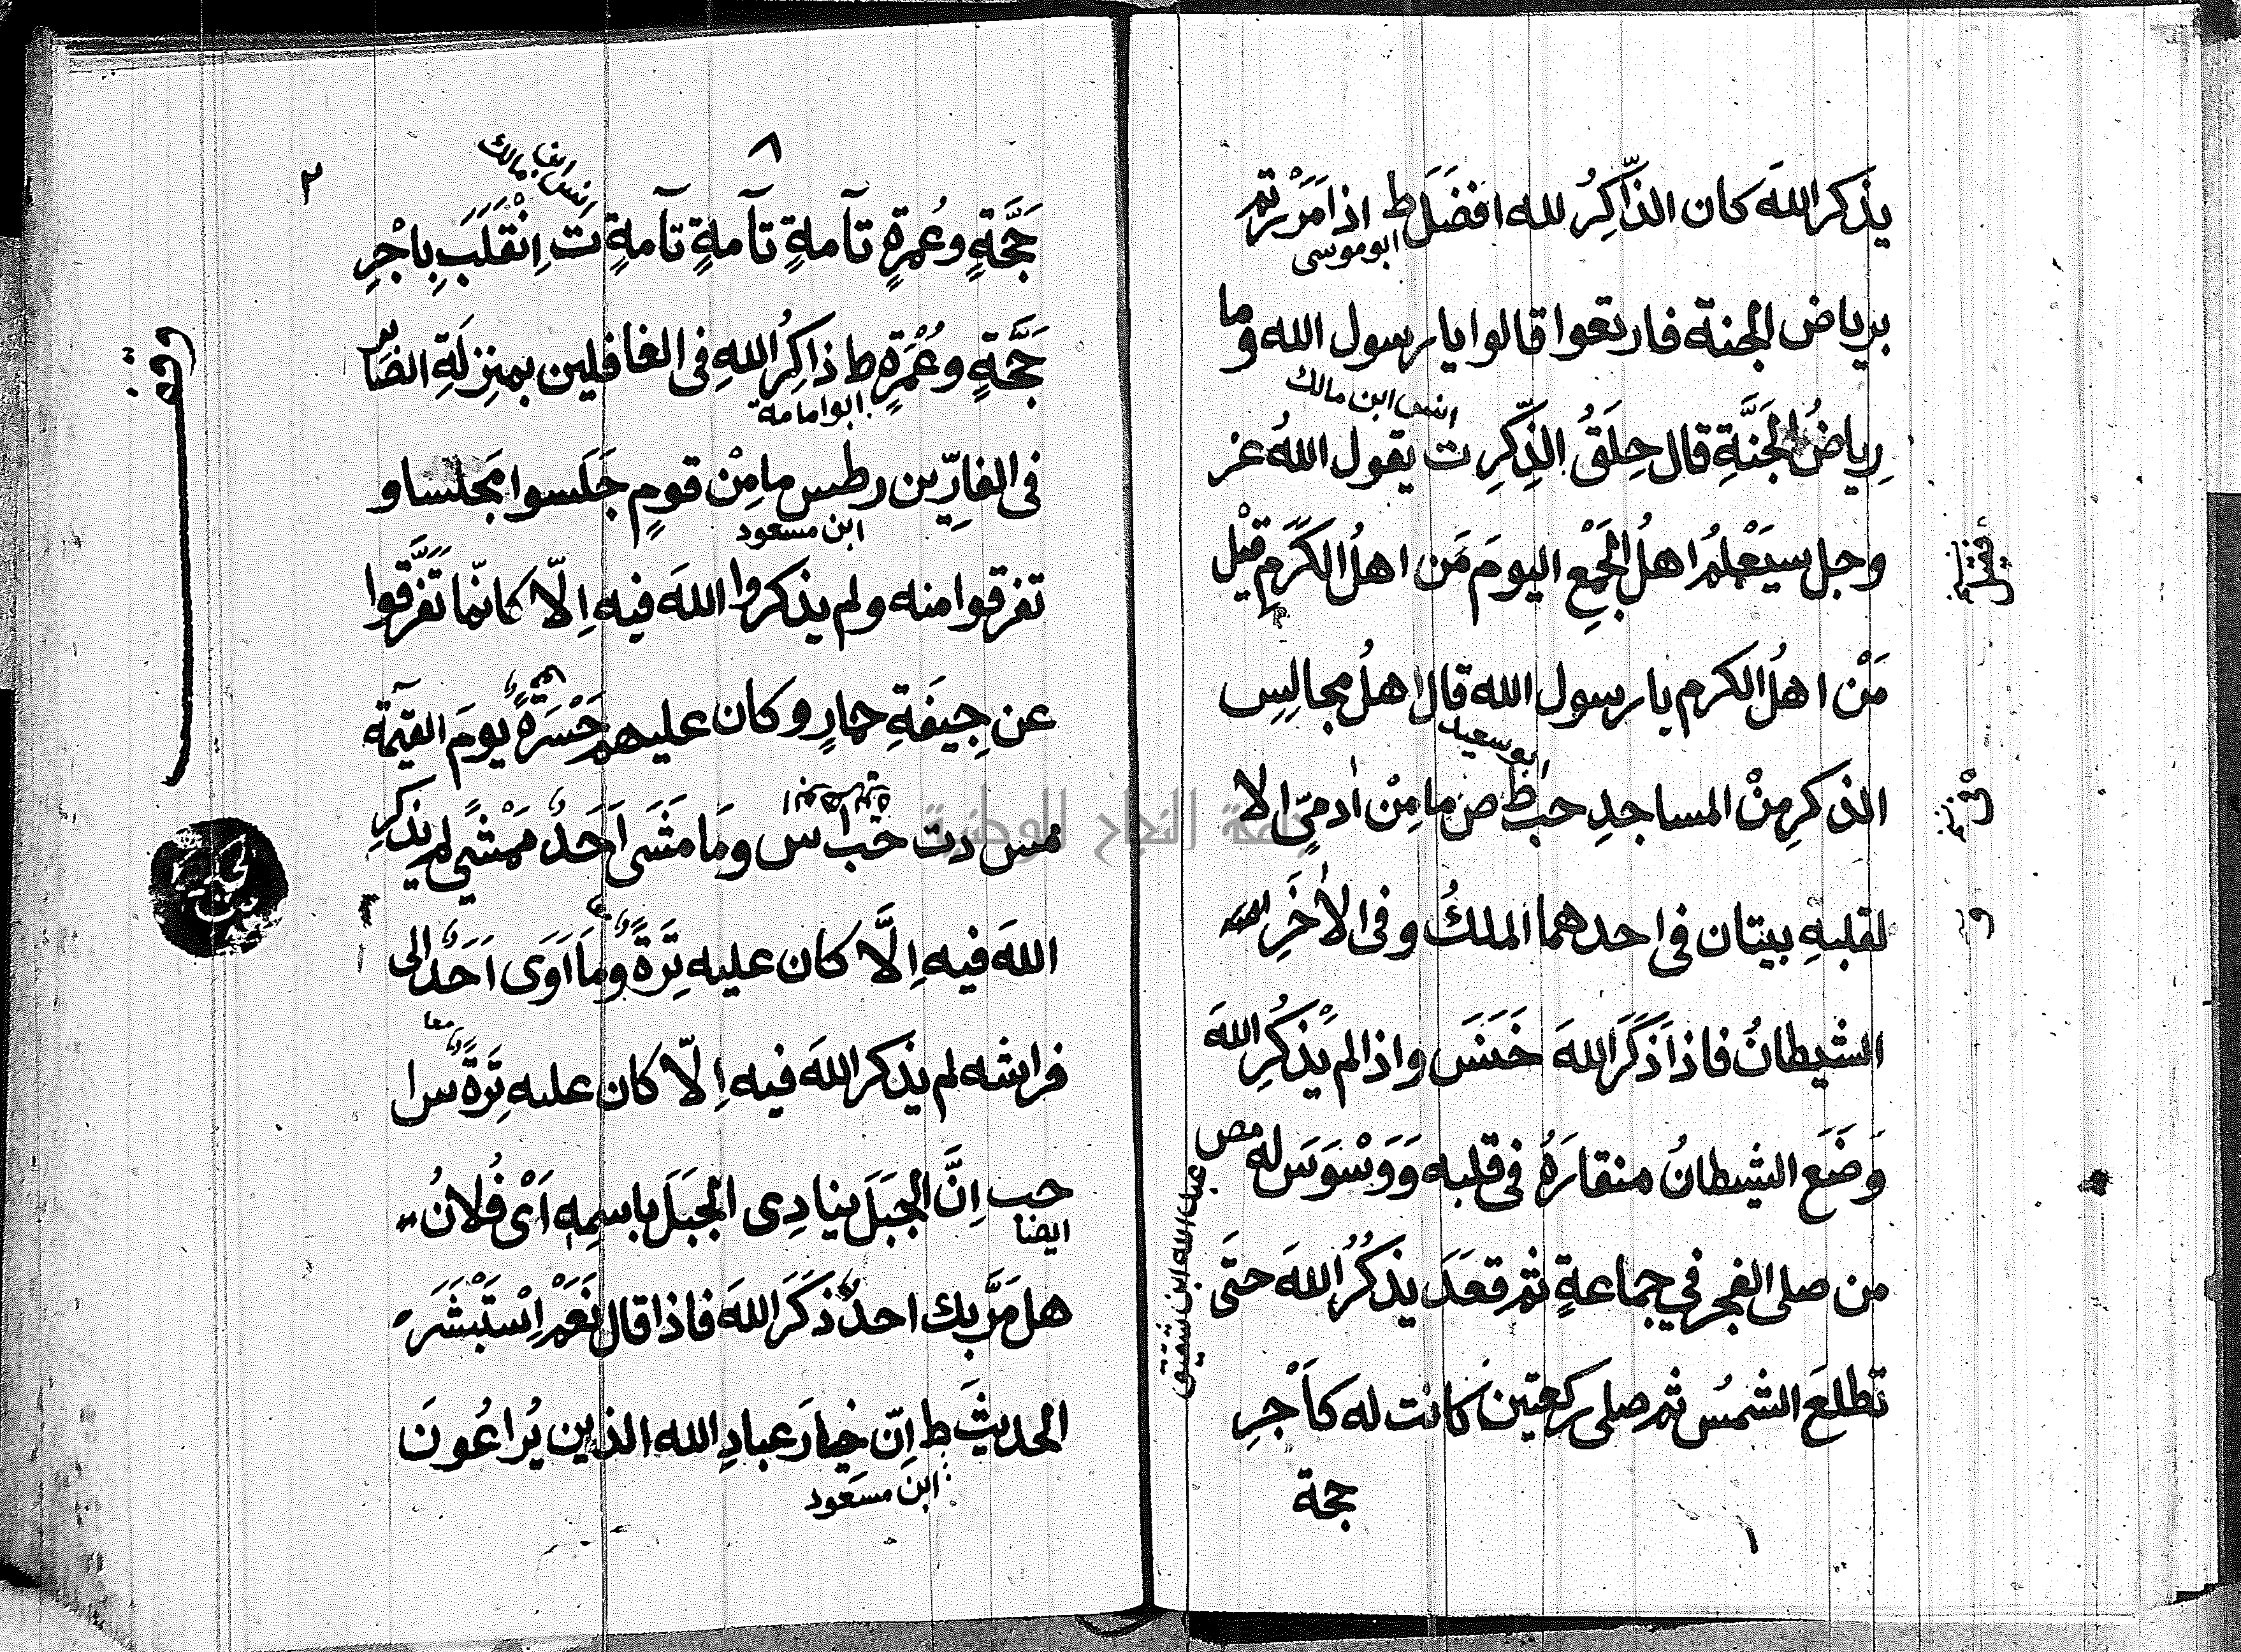 يذكر اللهَ كان الذّاكِرُ لله افضَلَ ط اذا مَرَرْتم
ابو موسى
برياض الجنة فارتعوا قالوا يا رسول الله وما
انس ابن مالك
رِياضُ الجَنَّةِ قال حِلَقُ الذِّكِرِ ت يقول اللهُ عز
وجل سيَعْلمُ اهلُ الجَمْعِ اليومَ مَن اهلُ الكَرَمِ قيْل
فقيل
مَنْ اهلُ الكرم يا رسول الله قال اهلُ مجالِسِ
ابو سعيد
الذكرِ مِنْ المساجدِ حب ط ص ما مِنْ اٰدمىٍّ الا
فى
لقلبهِ بيتان فى احدهما الملكُ وفى الاٰخَرِ
و
الشيطانُ فاذا ذَكَرَ اللهَ خَنَسَ واذا لم يَذْكُرِ اللهَ
وَضَعَ الشيطانُ منقارَهُ فى قلبه وَوَسْوَسَ له مص
عبد الله ابن شقيق
من صلى الفجر في جماعةٍ ثم قعَدَ يذكُرُ اللهَ حتَى
تطلعَ الشمسُ ثم صلى ركعتين كانت له كاَجْرِ
حجة
٨
٢
انس ابن مالك
حَجَّةٍ وعُمرةٍ تآمةٍ تآمةٍ تآمةٍ ت اِنْقَلَبَ بِاَجْرِ
حَجَّةٍ وعُمْرَةٍ ط ذاكِرُ اللهِ فى الغافلين بمنِزلَةِ الصَّابر
ابو امامة
فى الفارِّين ر طس ما مِنْ قومٍ جَلَسوا مَجلسا و
ابن مسعود
تفرقوا منه ولم يذكروا اللهَ فيه اِلّا كانّما تَفَرَّقوا
عن جِيفَةِ حمارٍ وكان عليهم حَسْرَةً يومَ القيٰمة
ابو هريرة
مس د ت حب س ومَا مَشَى اَحَدٌ مَمْشًي لم يذكرِ
اللهَ فيه اِلَّا كان عليه تِرَةً ومَا اَوَى اَحَدٌ الى
معا
فراشه لم يذكر اللهَ فيه اِلّا كان عليه تِرَةً س ا
حب اِنَّ الجبَلَ ينادِى الجبَلَ باسمِهِ اَىْ فُلانُ
ايضا
هل مَرَّ بك احدٌ ذكَرَ اللهَ فاذا قال نَعَمْ اِسْتَبْشَرَ
الحديثَ ط اِنّ خيارَ عبادِ الله الذين يُراعُونَ
ابن مسعود
وقف
جامعة النجاح الوطنية